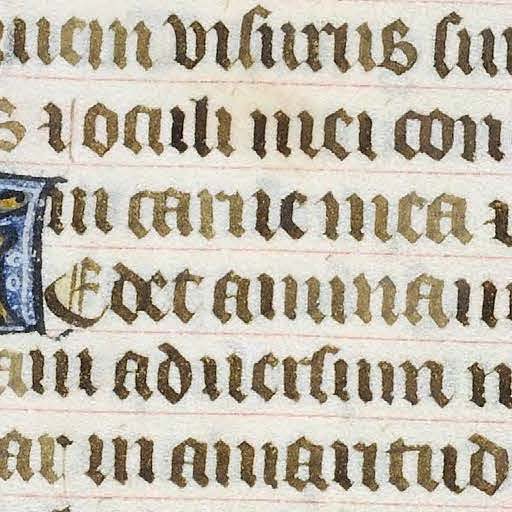 quem visurus sum
⁊ oculi mei con
in carne mea ⁊
Edet anima m
am adversum m
ar in amaritud